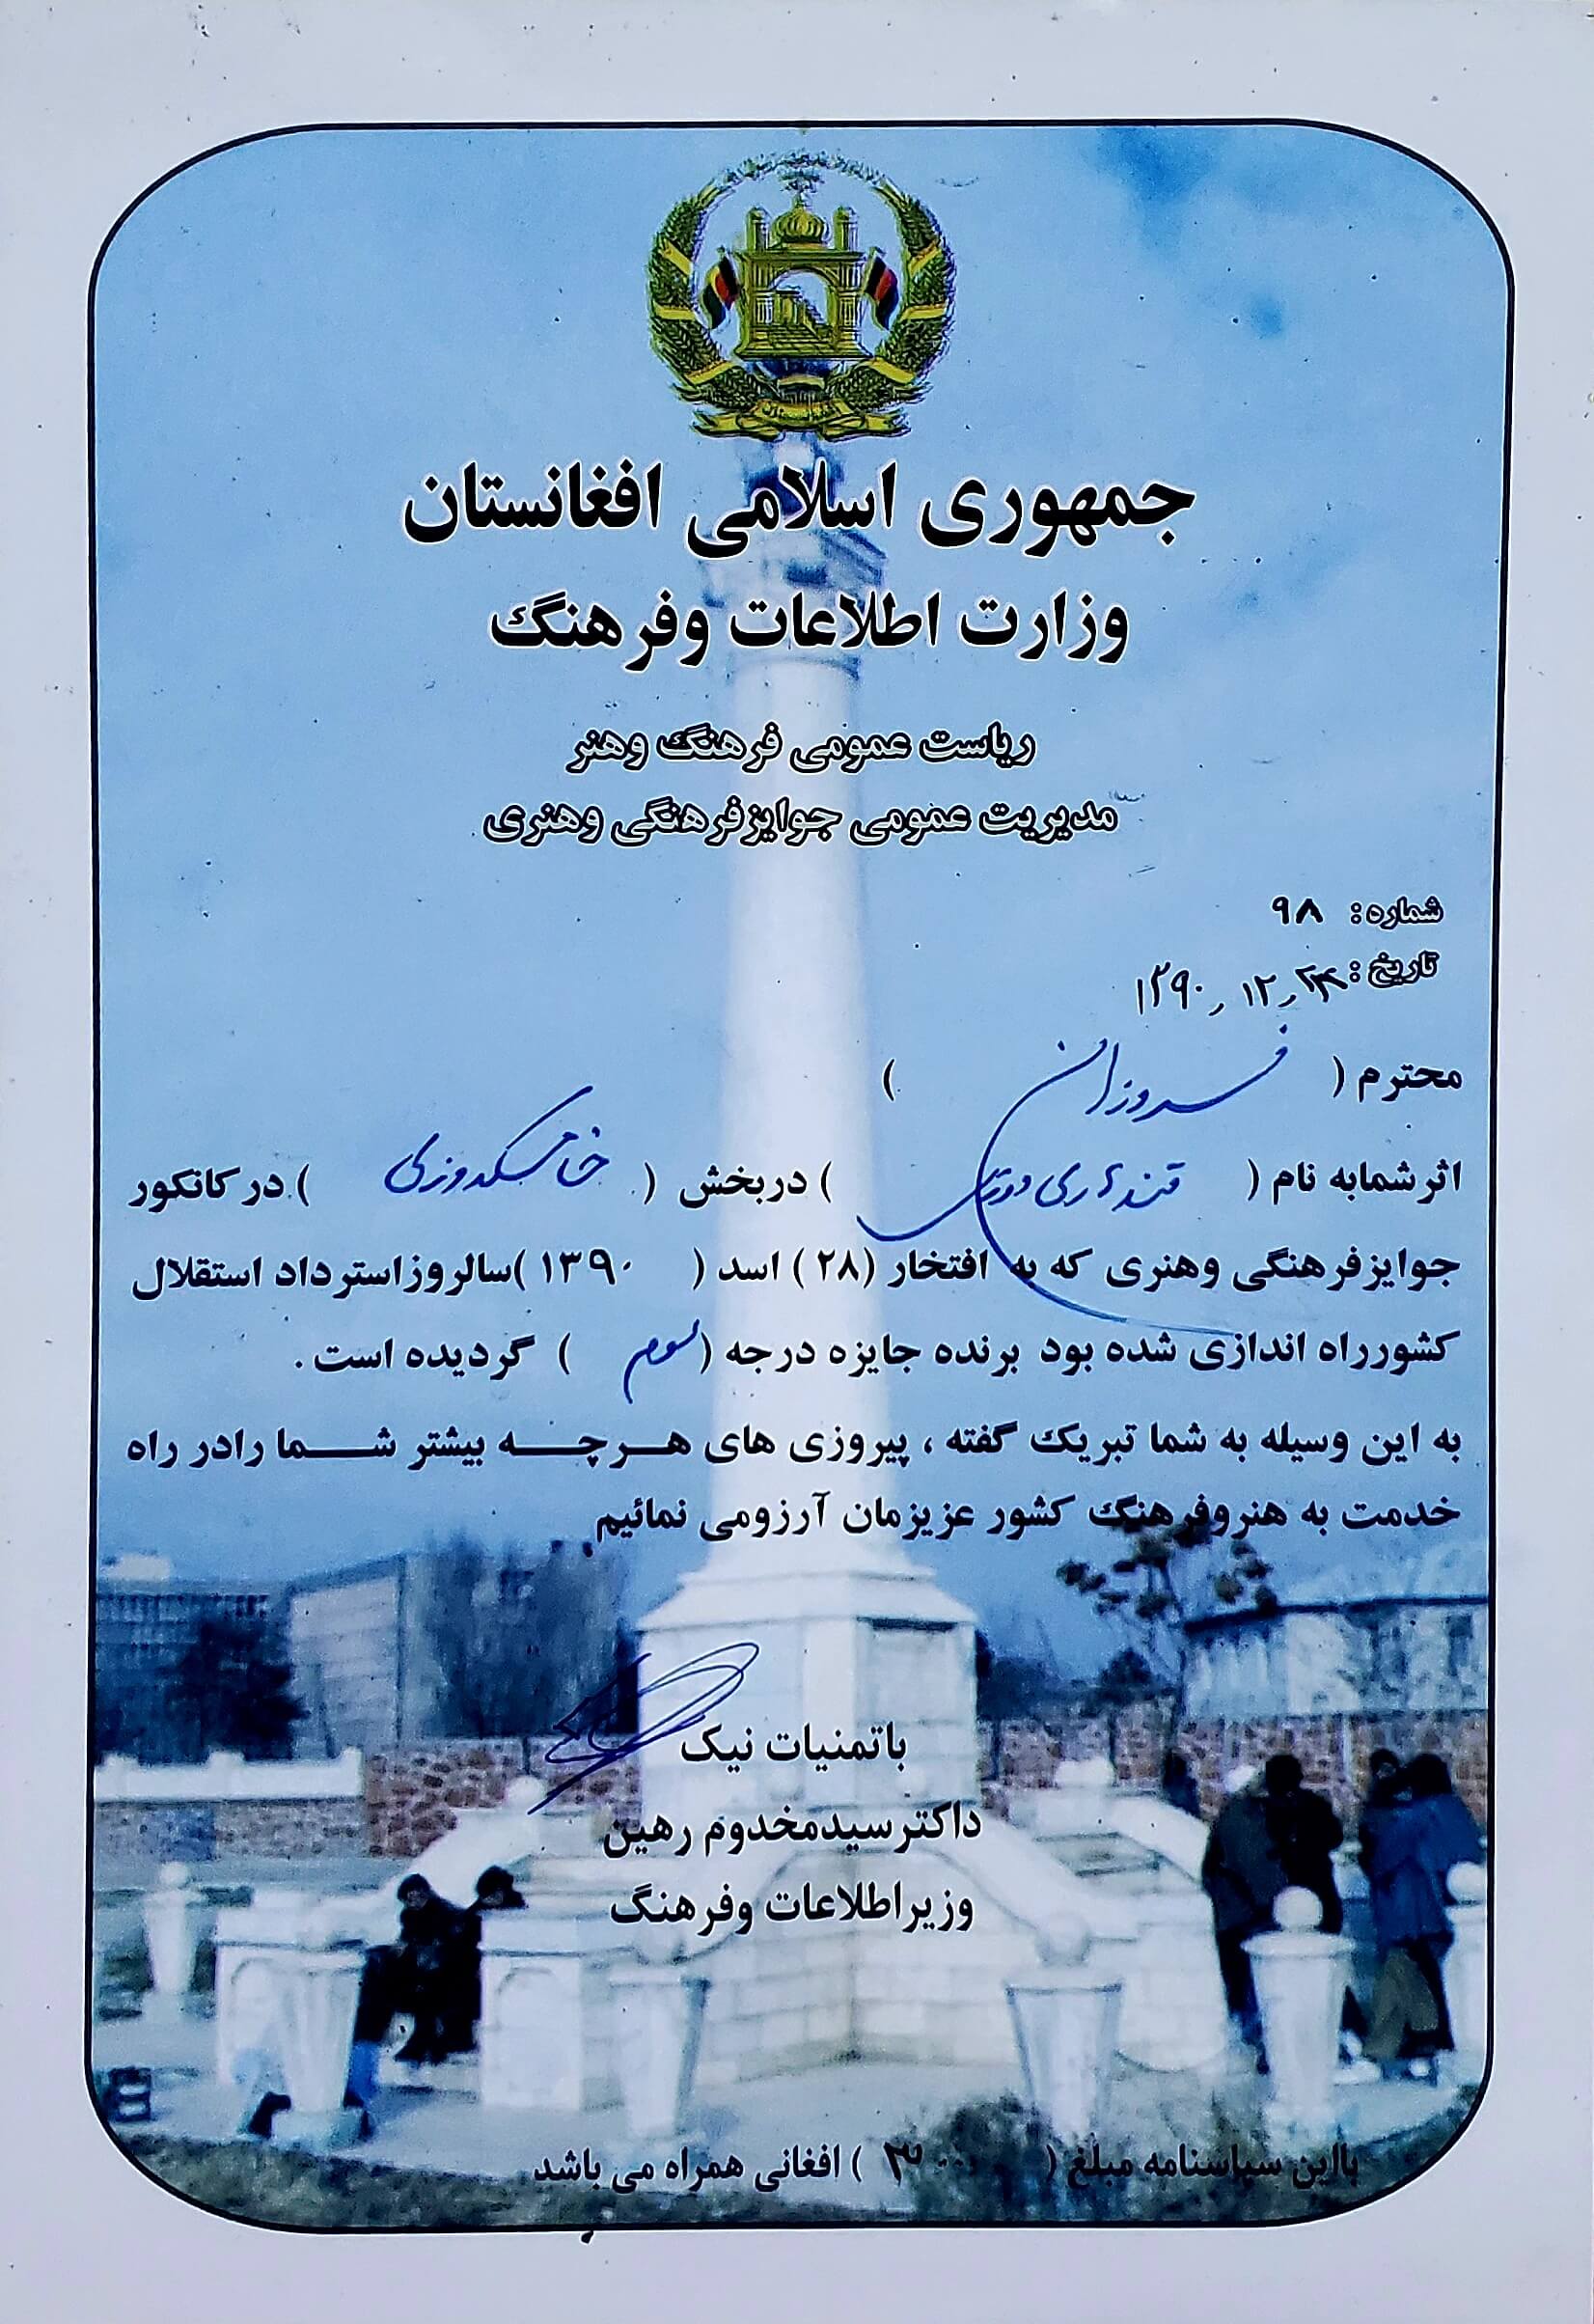 جمهوری اسلامی افغانستان
وزارت اطلاعات وفرهنگ
ریاست عمومی فرهنگ وهنر
مدیریت عمومی جوایزفرهنگی وهنری
شماره: ۹۸
تاریخ: ۱۳۹۰,۱۲,۲۴
محترم ( فروزان )
اثرشمابه نام ( قندهاری دوزی ) دربخش ( خامکدوزی ) درکانکور
جوایزفرهنگی وهنری که به افتخار (۲۸) اسد ( ۱۳۹۰ )سالروزاسترداد استقلال
کشورراه اندازی شده بود برنده جایزه درجه (سوم ) گردیده است.
به این وسیله به شما تبریک گفته ، پیروزی های هرچه بیشتر شما رادر راه
خدمت به هنروفرهنگ کشور عزیزمان آرزومی نمائیم
باتمنیات نیک
داکترسیدمخدوم رهین
وزیراطلاعات وفرهنگ
بااین سپاسنامه مبلغ ( ۳۰۰۰ ) افغانی همراه می باشد